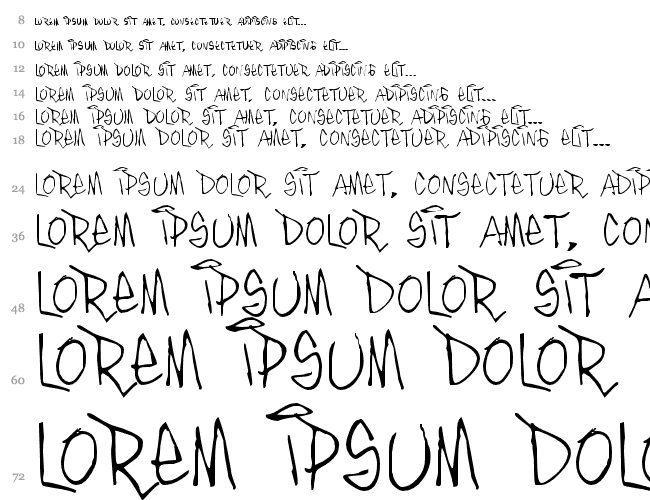 8 LOREM IPSUM DOLOR SIT AMET, CONSECTETUER ADIPISCING ELIT...
10 LOREM IPSUM DOLOR SIT AMET, CONSECTETUER ADIPISCING ELIT...
12 LOREM IPSUM DOLOR SIT AMET, CONSECTETUER ADIPISCING ELIT...
14 LOREM IPSUM DOLOR SIT AMET, CONSECTETUER ADIPISCING ELIT...
16 LOREM IPSUM DOLOR SIT AMET, CONSECTETUER ADIPISCING ELIT...
18 LOREM IPSUM DOLOR SIT AMET, CONSECTETUER ADIPISCING ELIT...
24 LOREM IPSUM DOLOR SIT AMET, CONSECTETUER ADIP
36 LOREM IPSUM DOLOR SIT AMET, CON
48 LOREM IPSUM DOLOR SIT A
60 LOREM IPSUM DOLOR
72 LOREM IPSUM DOL